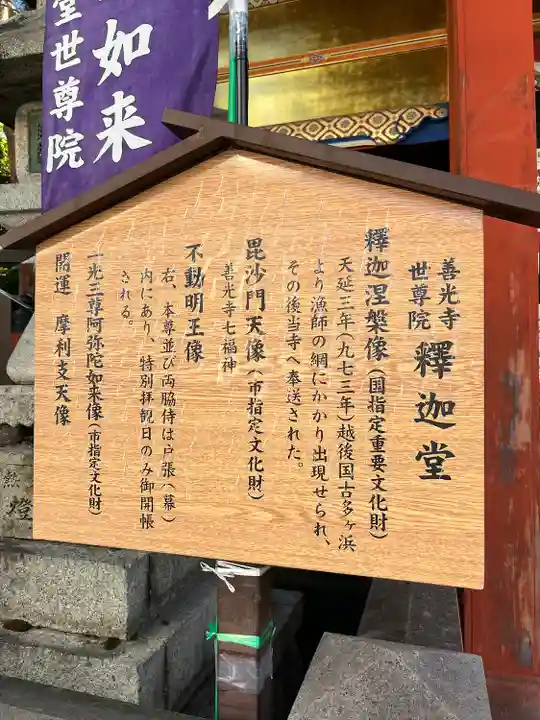 如来
堂世尊院
善光寺
世尊院
釋迦堂
釋迦涅槃像(国指定重要文化財)
天延三年(九七三年)越後国古多ヶ浜
より漁師の網にかかり出現せられ、
その後当寺へ奉送された。
毘沙門天像(市指定文化財)
善光寺七福神
不動明王像
右、本尊並び両脇侍は戸張(幕)
内にあり、特別拝観日のみ御開帳
される。
一光三尊阿弥陀如来像(市指定文化財)
開運 摩利支天像
燈